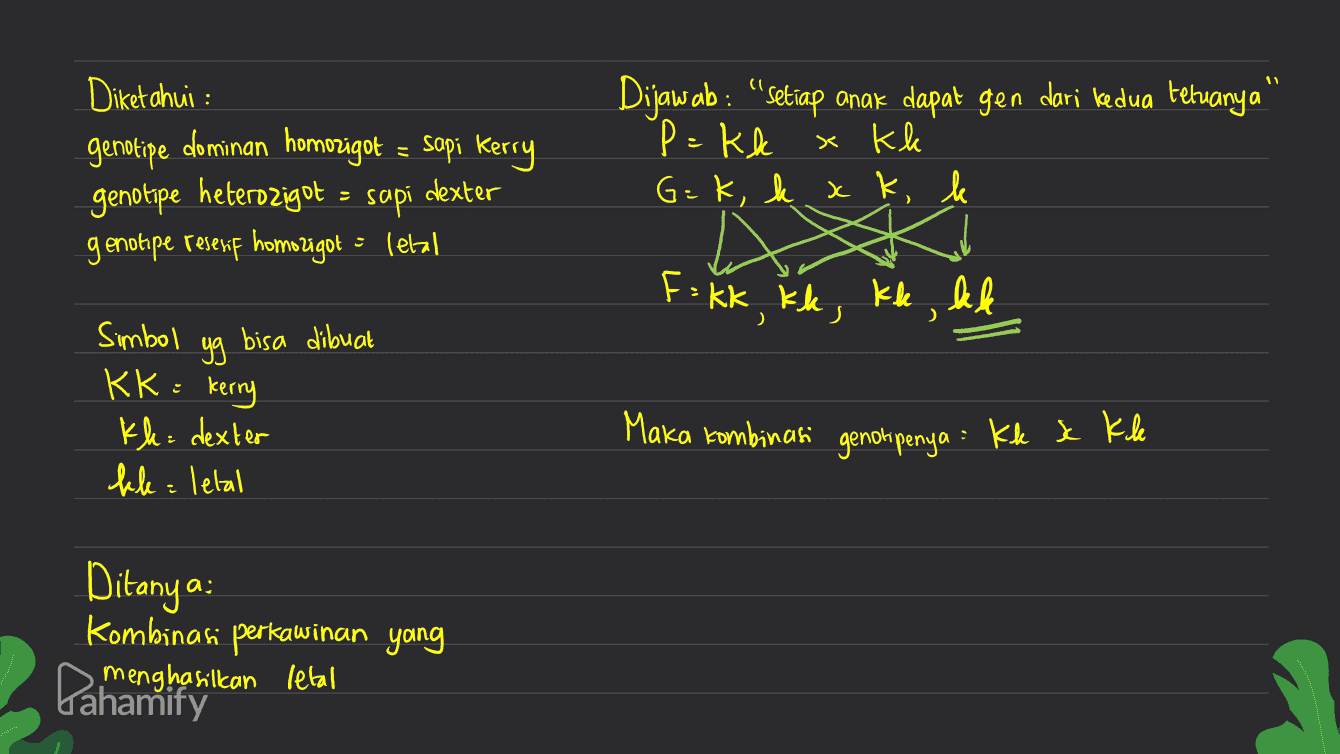 Diketahui :
genotipe dominan homozigot = sapi Kerry
genotipe heterozigot = sapi dexter
genotipe resesif homozigot = letal
Simbol yg bisa dibuat
KK = kerry
Kk = dexter
kk = letal
Ditanya:
Kombinasi perkawinan yang
menghasilkan letal
Dijawab : "setiap anak dapat gen dari kedua tetuanya"
P = Kk x Kk
G = K, k x K, k
F = KK, Kk, Kk, kk
Maka kombinasi genotipenya : Kk x Kk
Pahamify